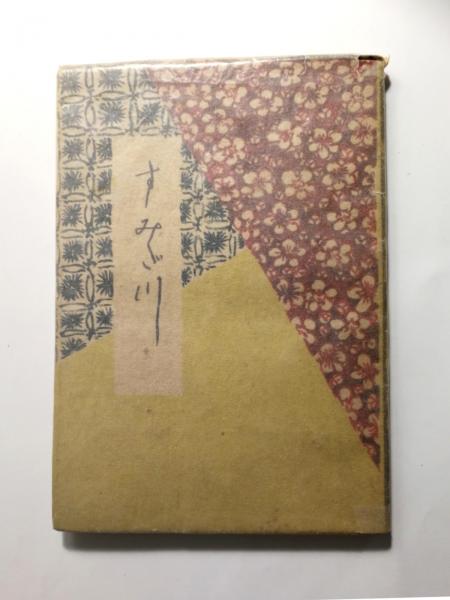 すみだ川